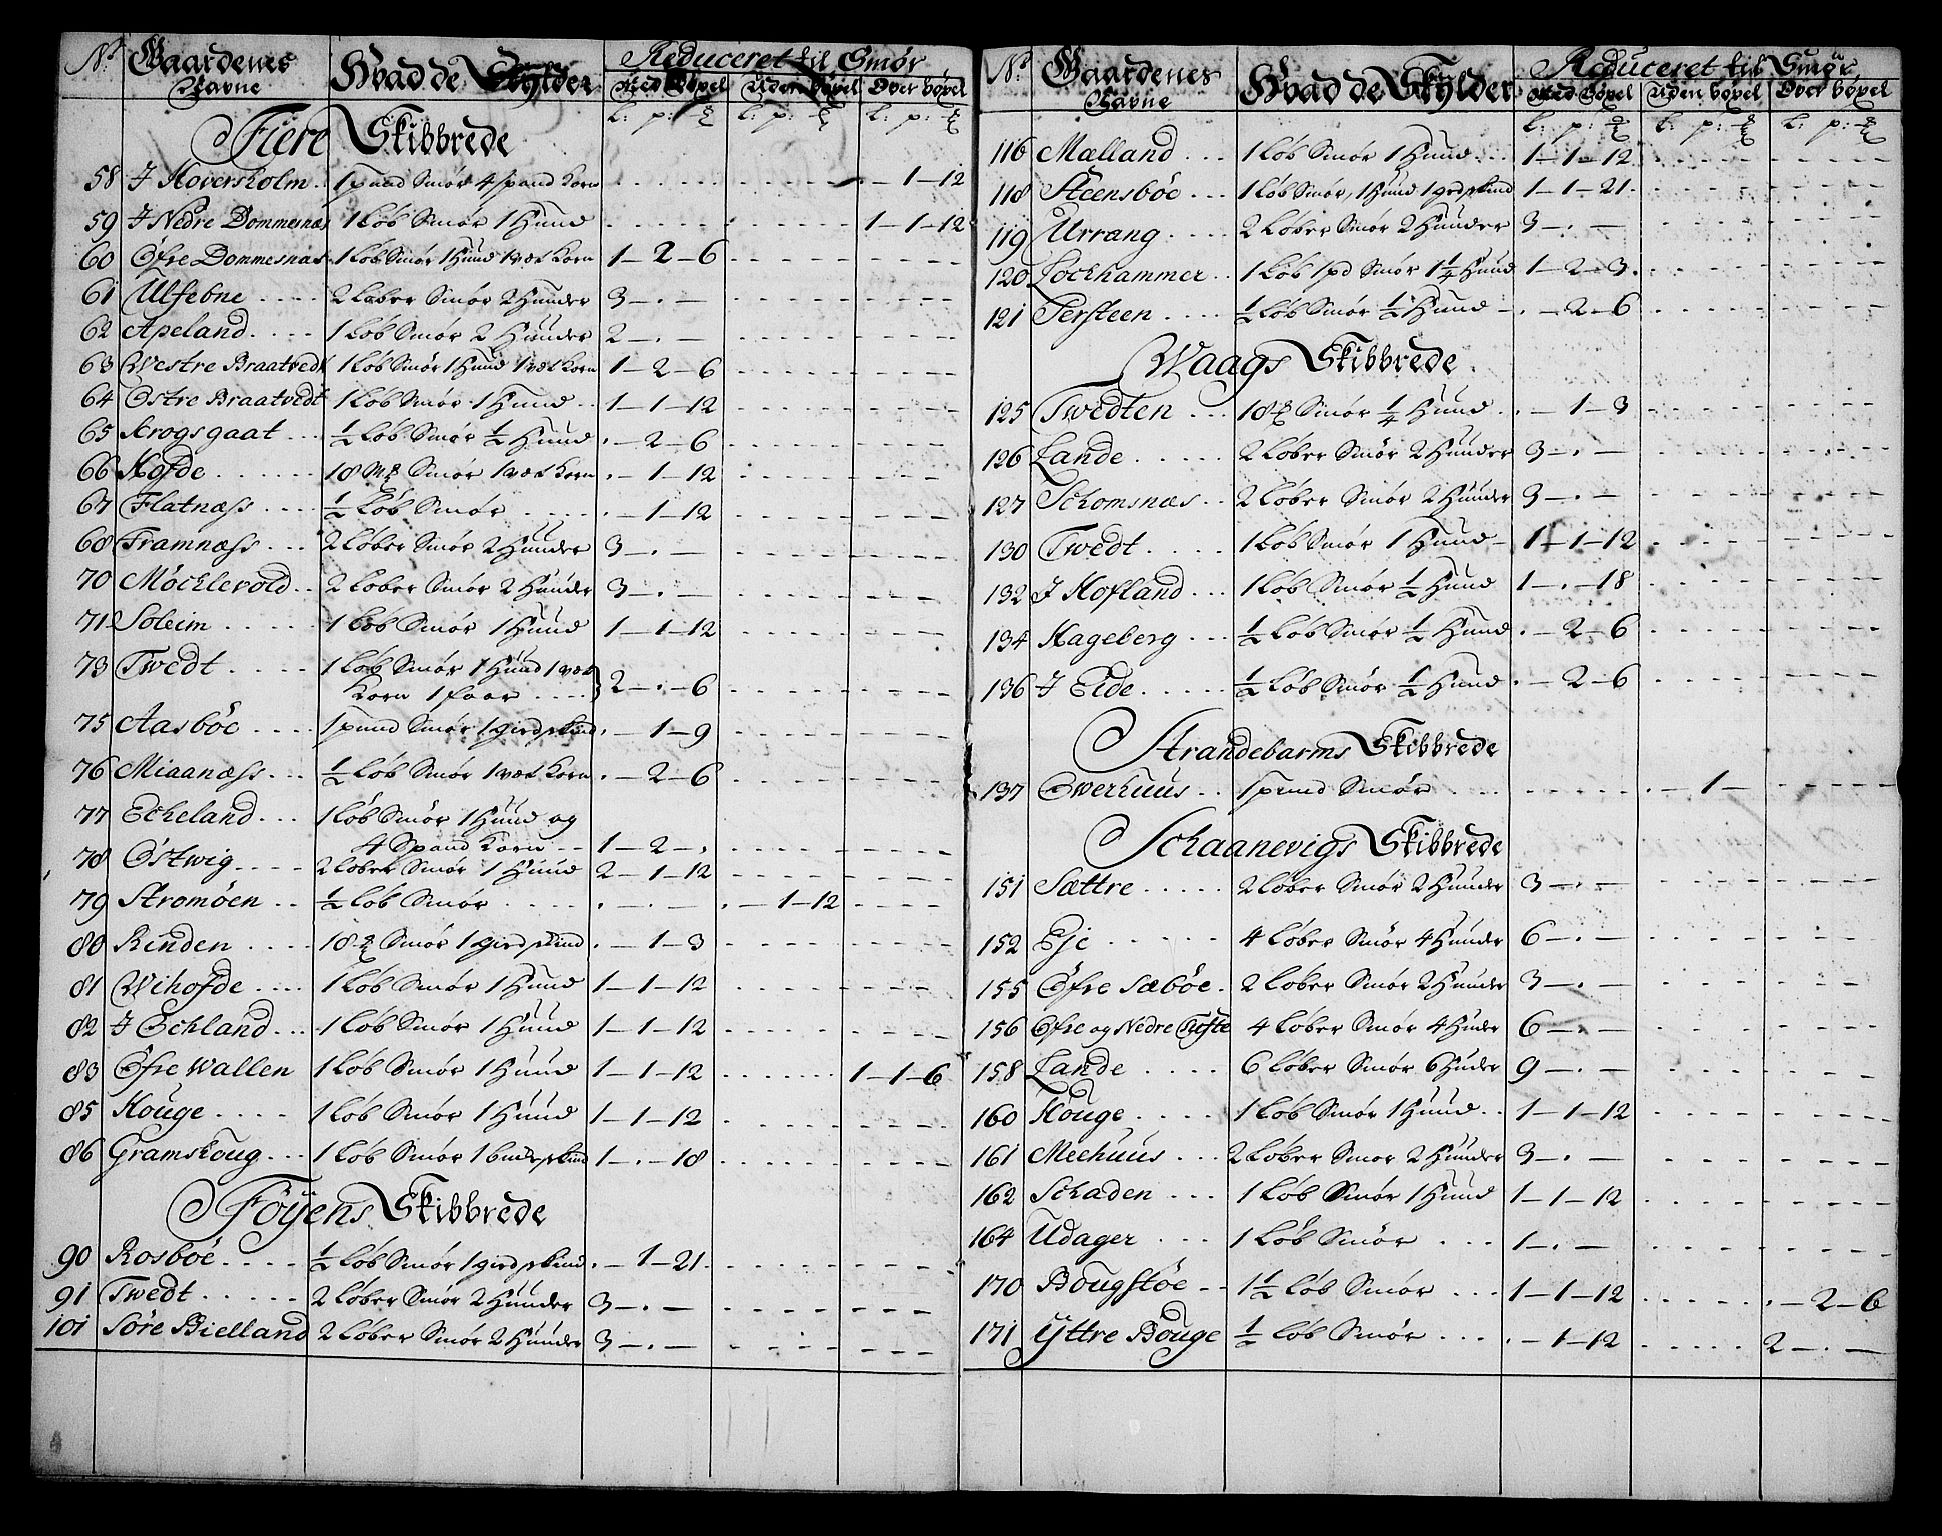 No Gaardenes Navne Hvad de Skylder Reduceret til Smør
Med bøxel Uden bøxel Over bøxel
l: p: l: p: l: p:
Fiere Skibbrede
58 J Hoversholm 1 pund Smør 4 spand Korn 1-12
59 J Nedre Dommesnæs 1 Løb Smør 1 Huud 1-1-12
60 Øfre Dommesnæs 1 Løb Smør 1 Huud 1 væt Korn 1-2-6
61 Ulfebne 2 Løber Smør 2 Huuder 3-.-
62 Apeland 1 Løb Smør 2 Huuder 2-.-
63 Westre Braatvedt 1 Løb Smør 1 Huud 1 væt Korn 1-2-6
64 Østre Braatvedt 1 Løb Smør 1 Huud 1-1-12
65 Krogsgaat ½ Løb Smør ½ Huud .-2-6
66 Hofde 18 Mk Smør 1 væt Korn .-1-12
67 Flatnæss ½ Løb Smør .-1-12
68 Framnæss 2 Løber Smør 2 Huuder 3-.-
70 Möcklevold 2 Løber Smør 2 Huuder 3-.-
71 Soleim 1 Løb Smør 1 Huud 1-1-12
73 Twedt 1 Løb Smør 1 Huud 1 væt
Korn 1 faar 2-.-6
75 Aasbøe 1 pund Smør 1 giedskind .-1-9
76 Miaanæss ½ Løb Smør 1 væt Korn .-2-6
77 Echeland 1 Løb Smør 1 Huud og
4 Spand Korn 1-2-.
78 Østwig 2 Løber Smør 1 Huud 2-1-12
79 Strømøen ½ Løb Smør .-1-12
80 Rinden 18 Smør 1 giedskind .-1-3
81 Wihofde 1 Løb Smør 1 Huud 1-1-12
82 J Echland 1 Løb Smør 1 Huud 1-1-12
83 Øfre Wallen 1 Løb Smør 1 Huud 1-1-12 1-1-6
85 Houge 1 Løb Smør 1 Huud 1-1-12
86 Gramshoug 1 Løb Smør 1 buckskind 1-.-18
Föyens Skibbrede
90 Rosbøe ½ Løb Smør 1 giedskind .-1-21
91 Twedt 2 Løber Smør 2 Huuder 3-.-
101 Søre Bielland 2 Løber Smør 2 Huuder 3-.-
No Gaardenes Navne Hvad de Skylder Reduceret til Smør
Med bøxel Uden bøxel Over bøxel
l: p: l: p: l: p:
116 Mælland 1 Løb Smør 1 Huud 1-1-12
118 Steensbøe 1 Løb Smør, 1 Huud 1 gedskind 1-1-21
119 Urrang 2 Løber Smør 2 Huuder 3-.-
120 Lockhammer 1 Løb 1 pd Smør 1¼ Huud 1-2-3
121 Tersteen ½ Løb Smør ½ Huud .-2-6
Waags Skibbrede
125 Twedten 18 Smør ¼ Huud .-1-3
126 Lande 2 Løber Smør 2 Huuder 3-.-
127 Schomsnæs 2 Løber Smør 2 Huuder 3-.-
130 Twedt 1 Løb Smør 1 Huud 1-1-12
132 J Hofland 1 Løb Smør ½ Huud 1-.-18
134 Hageberg ½ Løb Smør ½ Huud .-2-6
136 J Eide ½ Løb Smør ½ Huud .-2-6
Strandebarms Skibbrede
137 Owerhuus 1 pund Smør .-1-
Schaanevigs Skibbrede
151 Sættre 2 Løber Smør 2 Huuder 3-.-
152 Eje 4 Løber Smør 4 Huuder 6-.-
155 Øfre Sæbøe 2 Løber Smør 2 Huuder 3-.-
156 Øfre og Nedre Tofte 4 Løber Smør 4 Huder 6-.-
158 Lande 6 Løber Smør 6 Huder 9-.-
160 Houge 1 Løb Smør 1 Huud 1-1-12
161 Meehuus 2 Løber Smør 2 Huuder 3-.-
162 Schaden 1 Løb Smør 1 Huud 1-1-12
164 Udager 1 Løb Smør 1-.-
170 Bougstøe 1½ Løb Smør 1-1-12 .-2-6
171 Yttre Bouge ½ Løb Smør .-1-12 2-.-